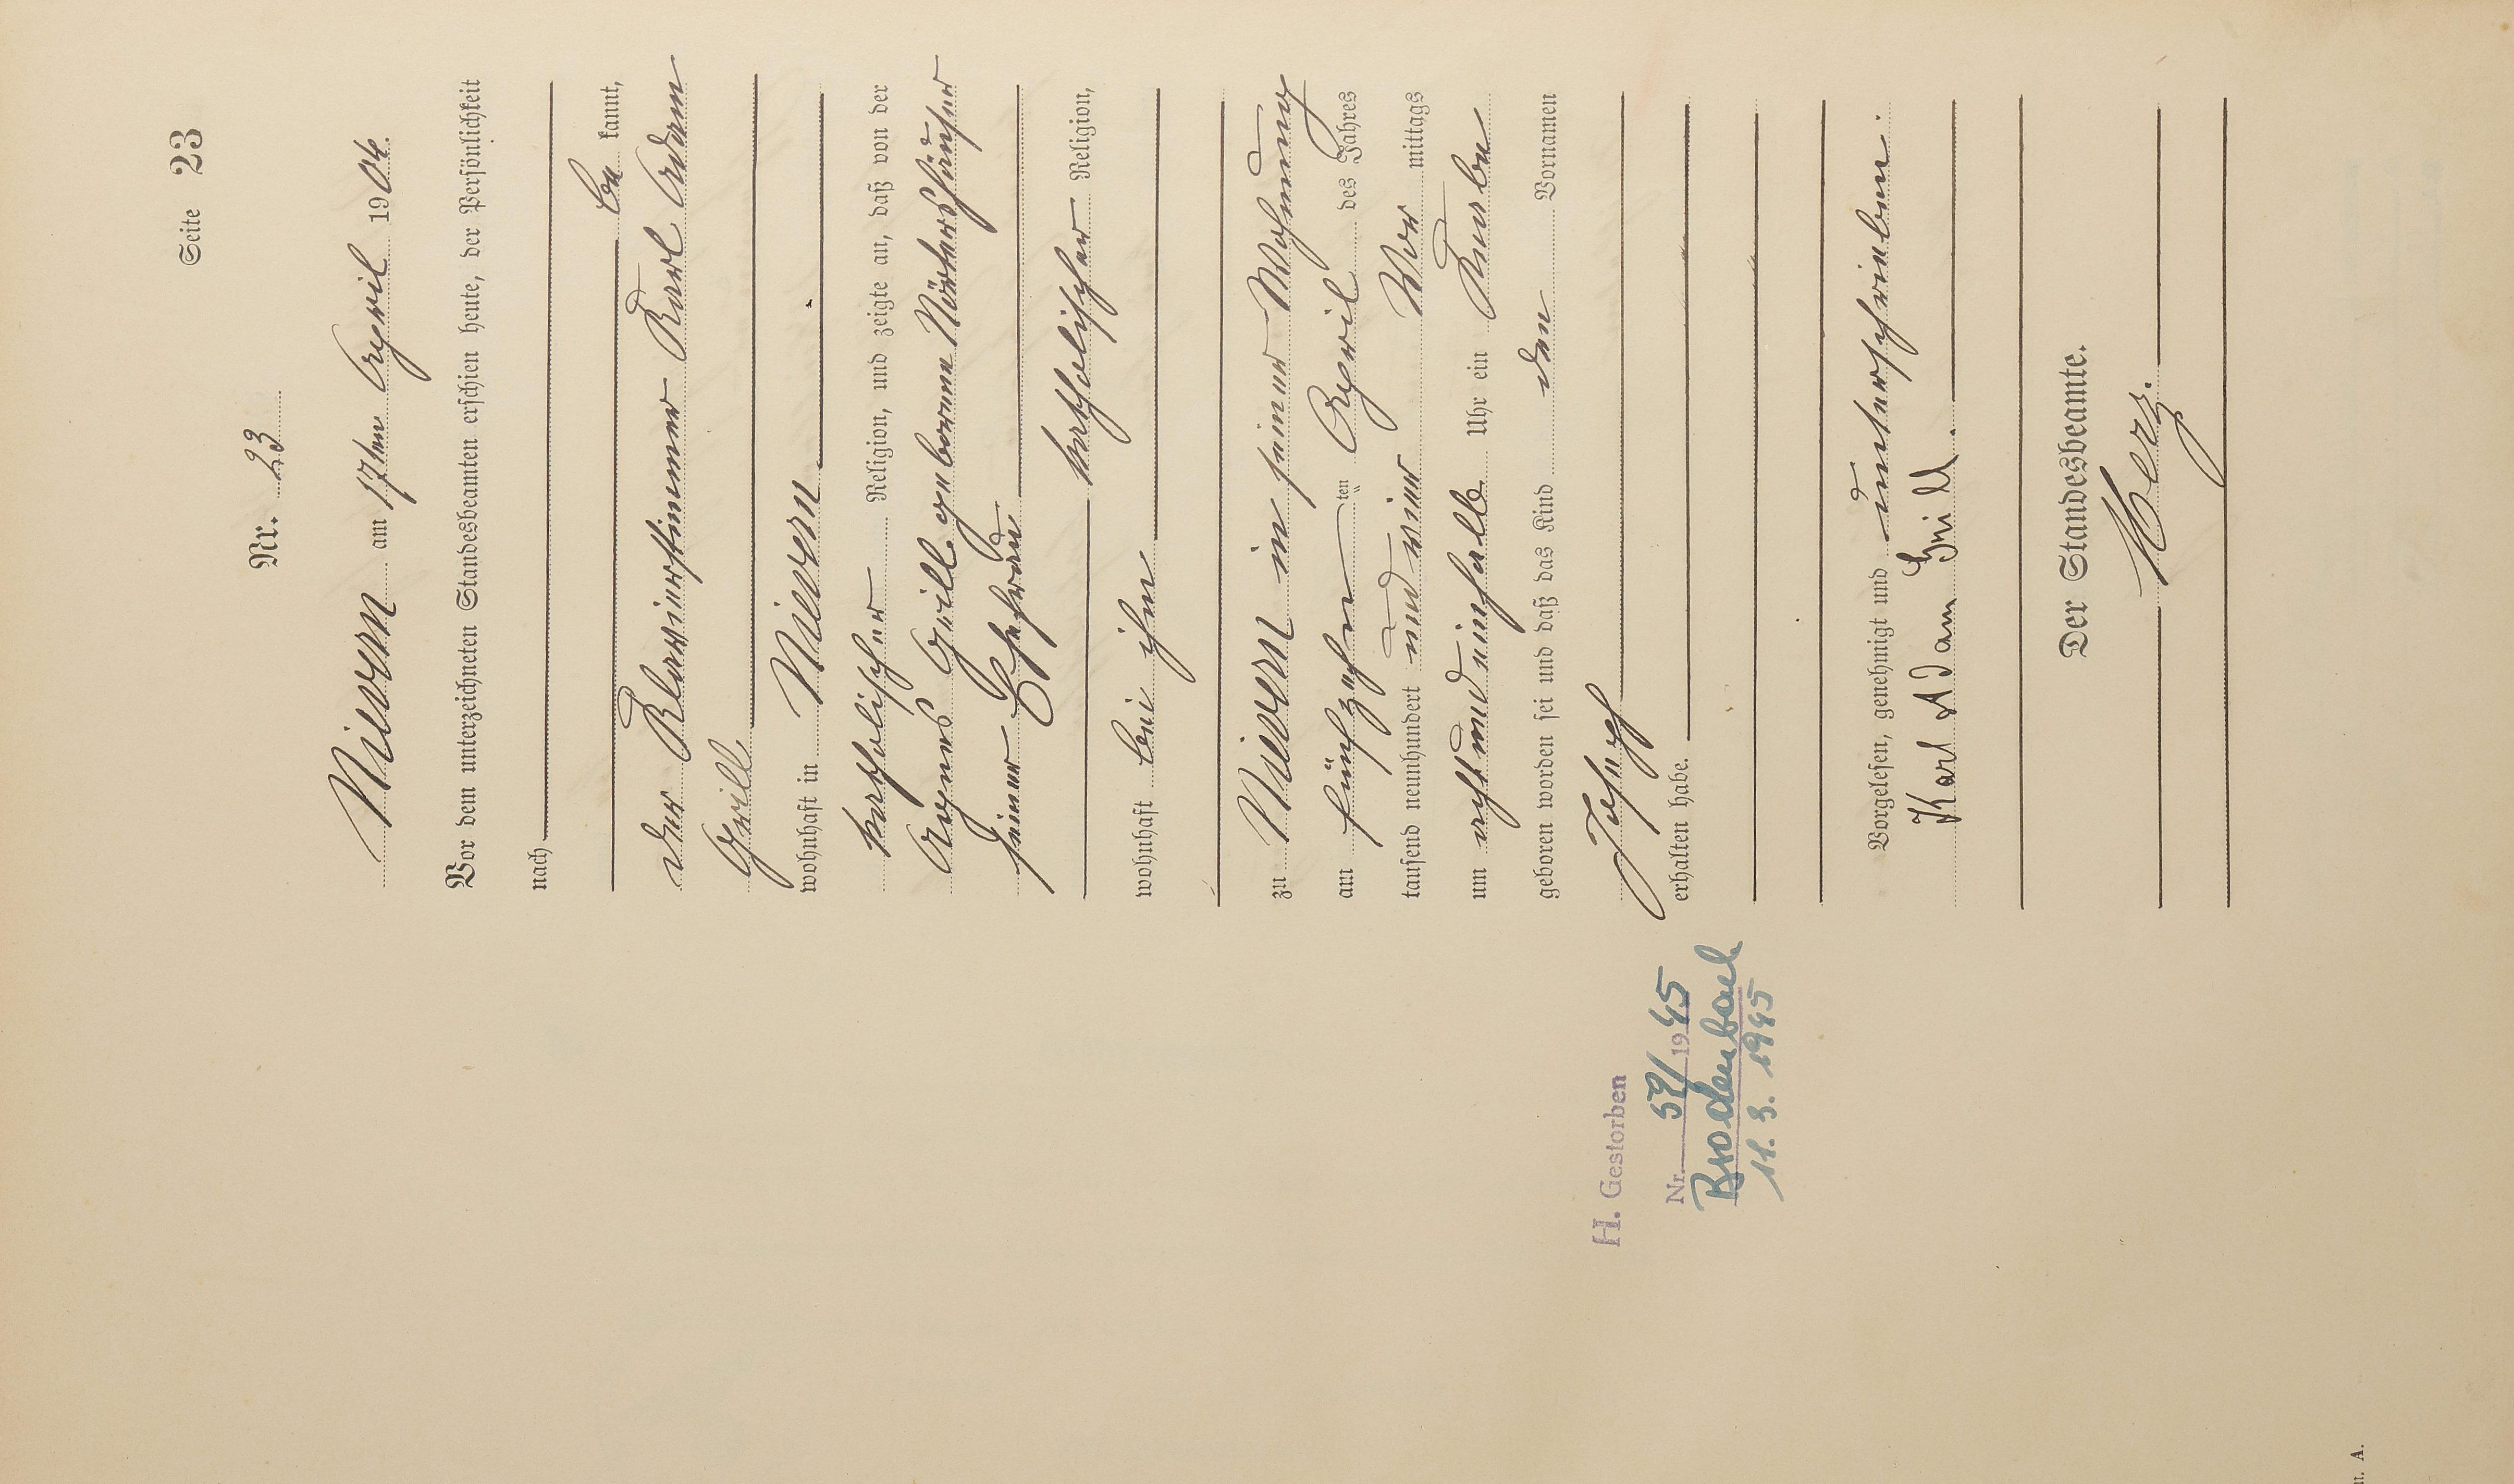 Seite 23
Nr. 23
Nievern am 17ten April 1904.
Vor dem unterzeichneten Standesbeamten erschien heute, der Persönlichkeit
nach
be kannt,
der Klavierstimmer Karl Adam
Grill
wohnhaft in Nievern
katholischer Religion, und zeigte an, daß von der
Agnes Grill geborene Nörtershäuser
seiner Ehefrau
katholischer Religion,
wohnhaft bei ihm
zu Nievern in seiner Wohnung
am fünfzehn ten April des Jahres
tausend neunhundert und vier Vor mittags
um acht und einhalb Uhr ein Knabe
geboren worden sei und daß das Kind den Vornamen
Joseph
erhalten habe.
Vorgelesen, genehmigt und unterschrieben.
Karl Adam Grill.
Der Standesbeamte.
Herz.
H. Gestorben
Nr. 59/1945
Brodenbach
11. 3. 1945
A.